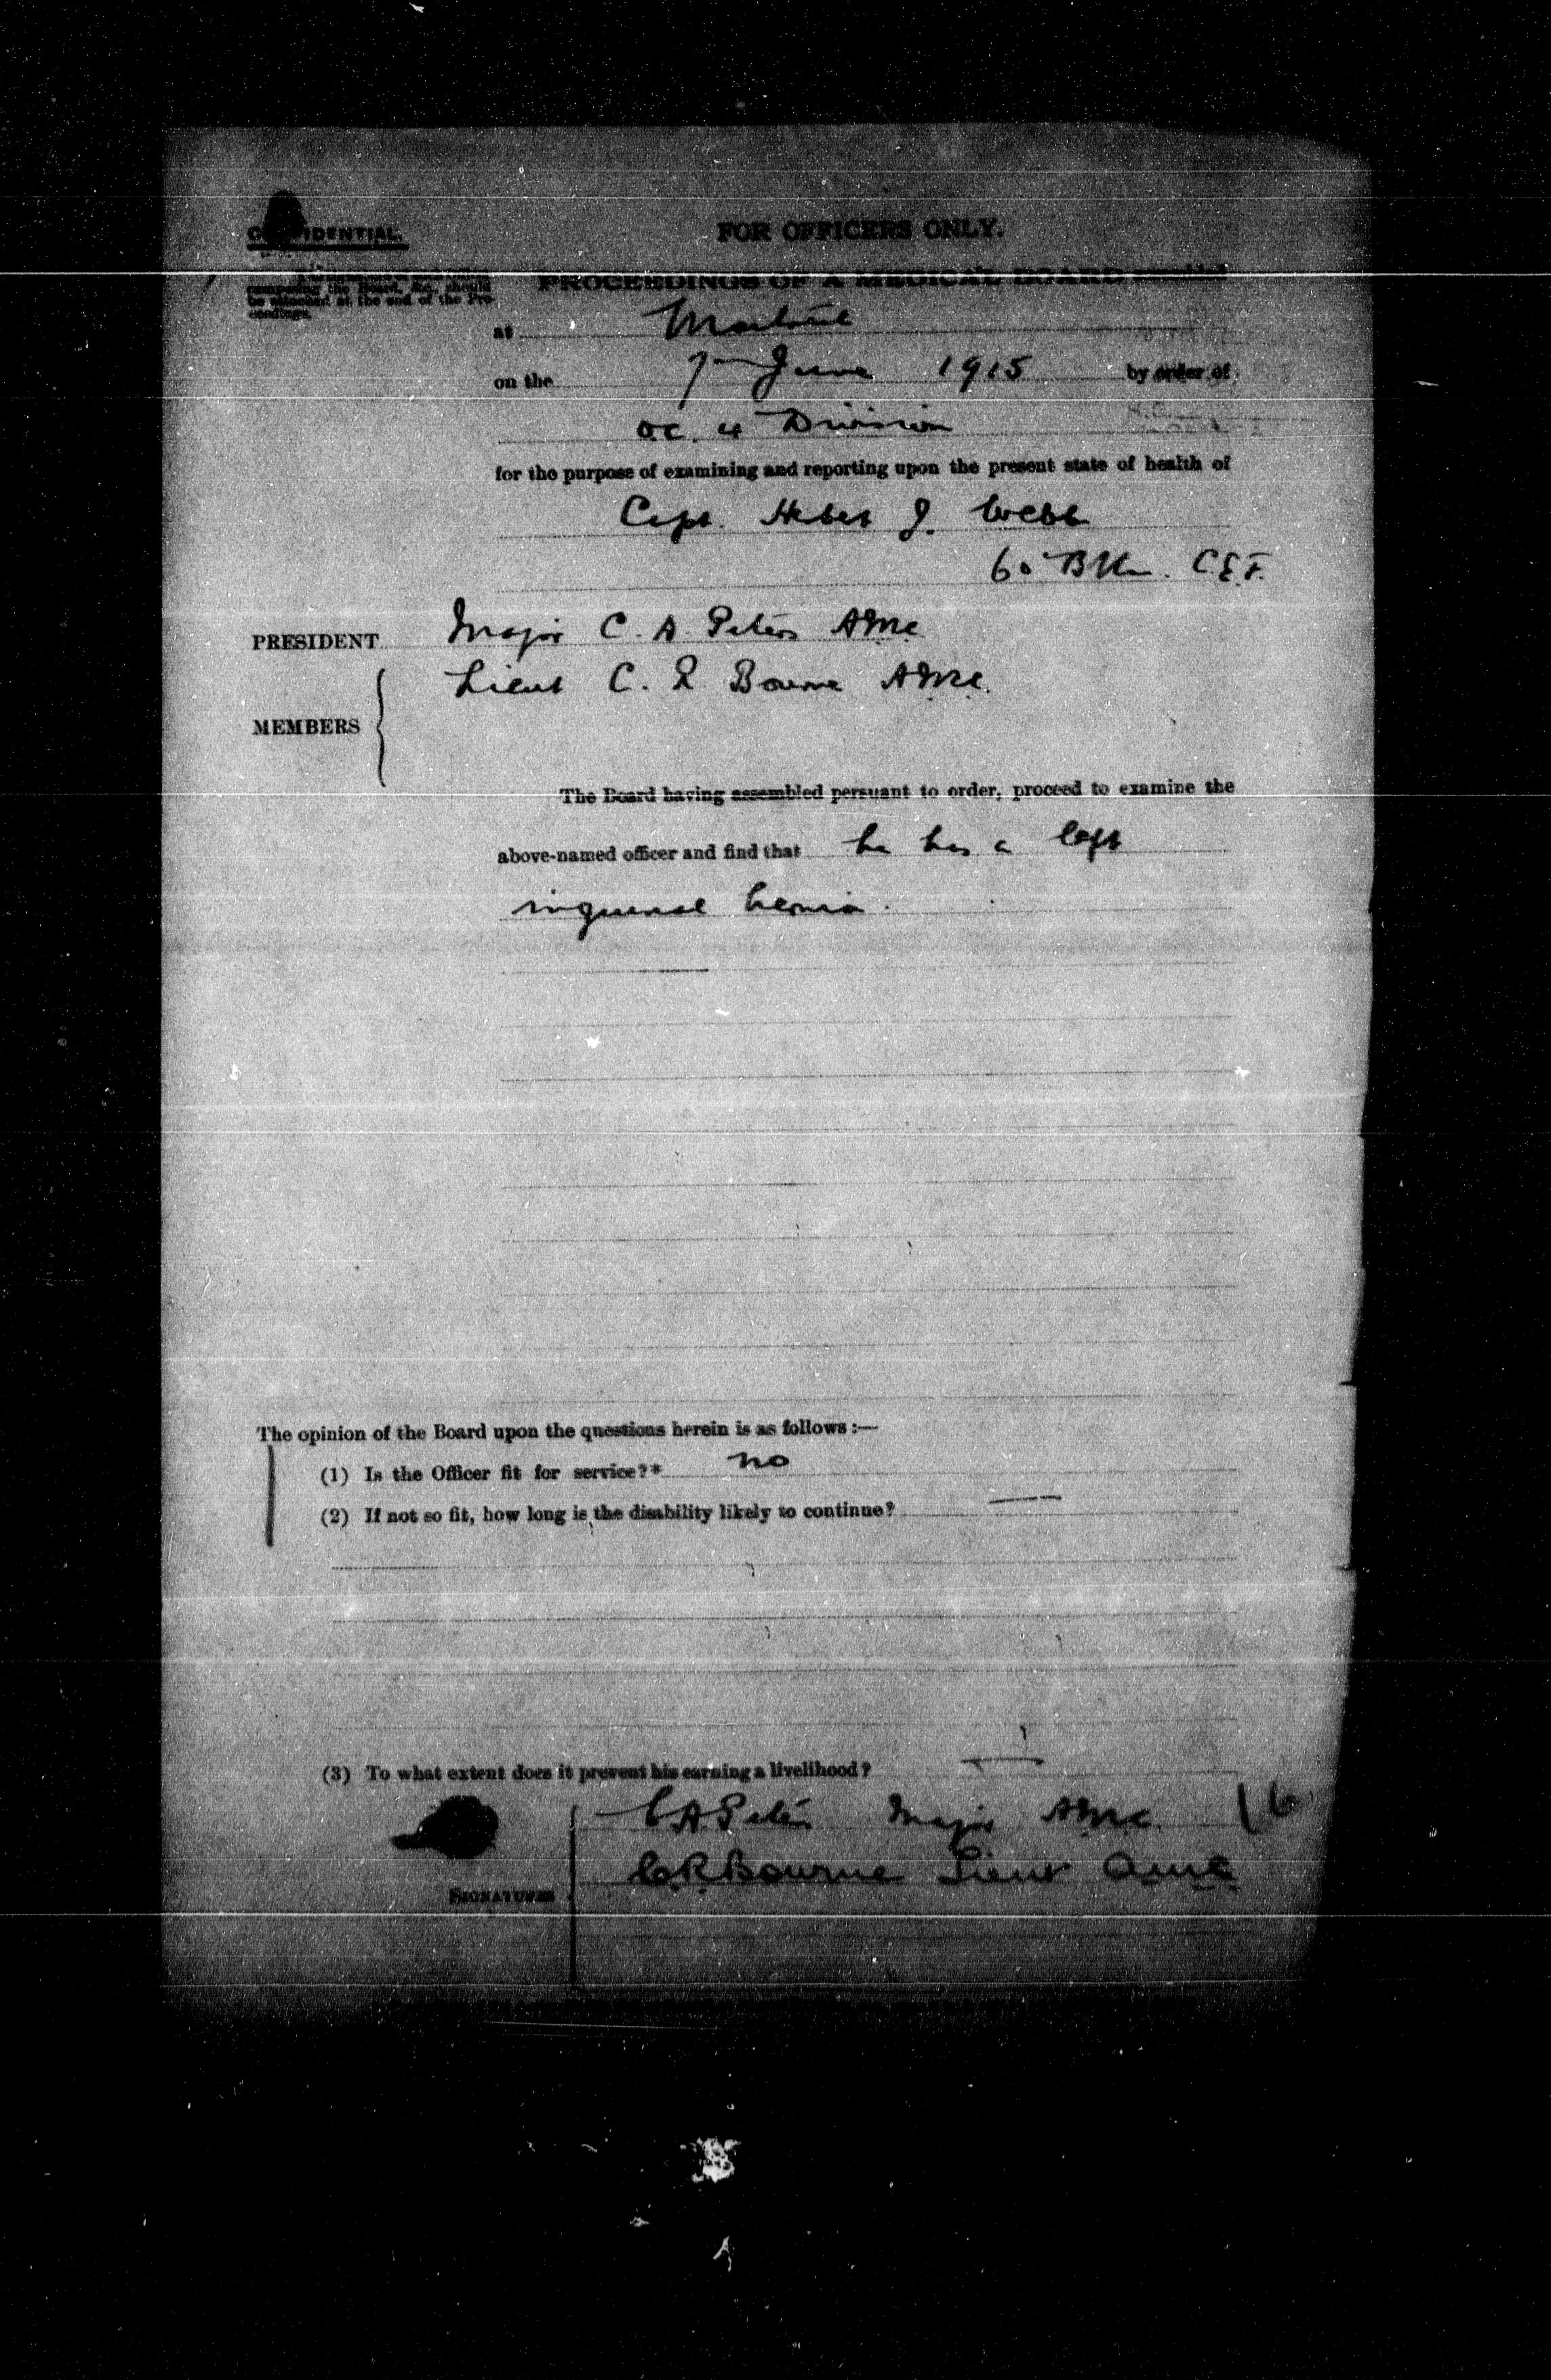 CONFIDENTIAL.
FOR OFFICERS ONLY.
PROCEEDINGS OF A MEDICAL BOARD
composing the Board, &c., should
be attached at the end of the Pro-
ceedings.
at Montreal
on the 7th June 1915 by order of
O.C. 4 Division
for the purpose of examining and reporting upon the present state of health of
Capt. J. Webb
60 Bttn. C.E.F.
PRESIDENT Major C. A Peters AMC
Lieut C. R Bourne AMC.
MEMBERS
The Board having assembled persuant to order, proceed to examine the
above-named officer and find that he has a left
inguinal hernia.
The opinion of the Board upon the questions herein is as follows :—
(1) Is the Officer fit for service?* no
(2) If not so fit, how long is the disability likely to continue? —
(3) To what extent does it prevent his earning a livelihood? —
C A Peters Major AMC.
C.R. Bourne Lieut AMC
SIGNATURES